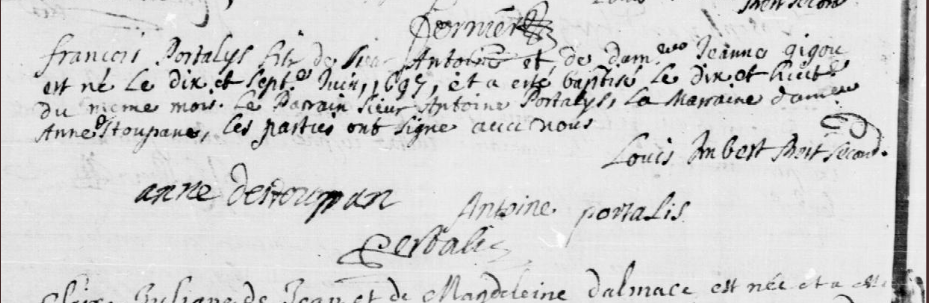 françois Portalys fils de sieur Antoine et de dam.lle Jeanne gigou
est né le dix et septe Juin, 1697, et a esté baptisé le dix et huit
du meme mois. Le Parrain Sieur Antoine Portalys, La Marraine dame
Anne Stoupane, Les parties ont signé avec nous
Louis Imbert
anne destoupan
Antoine portalis
Portalis
de Jean et de Magdeleine dalmace est née et a